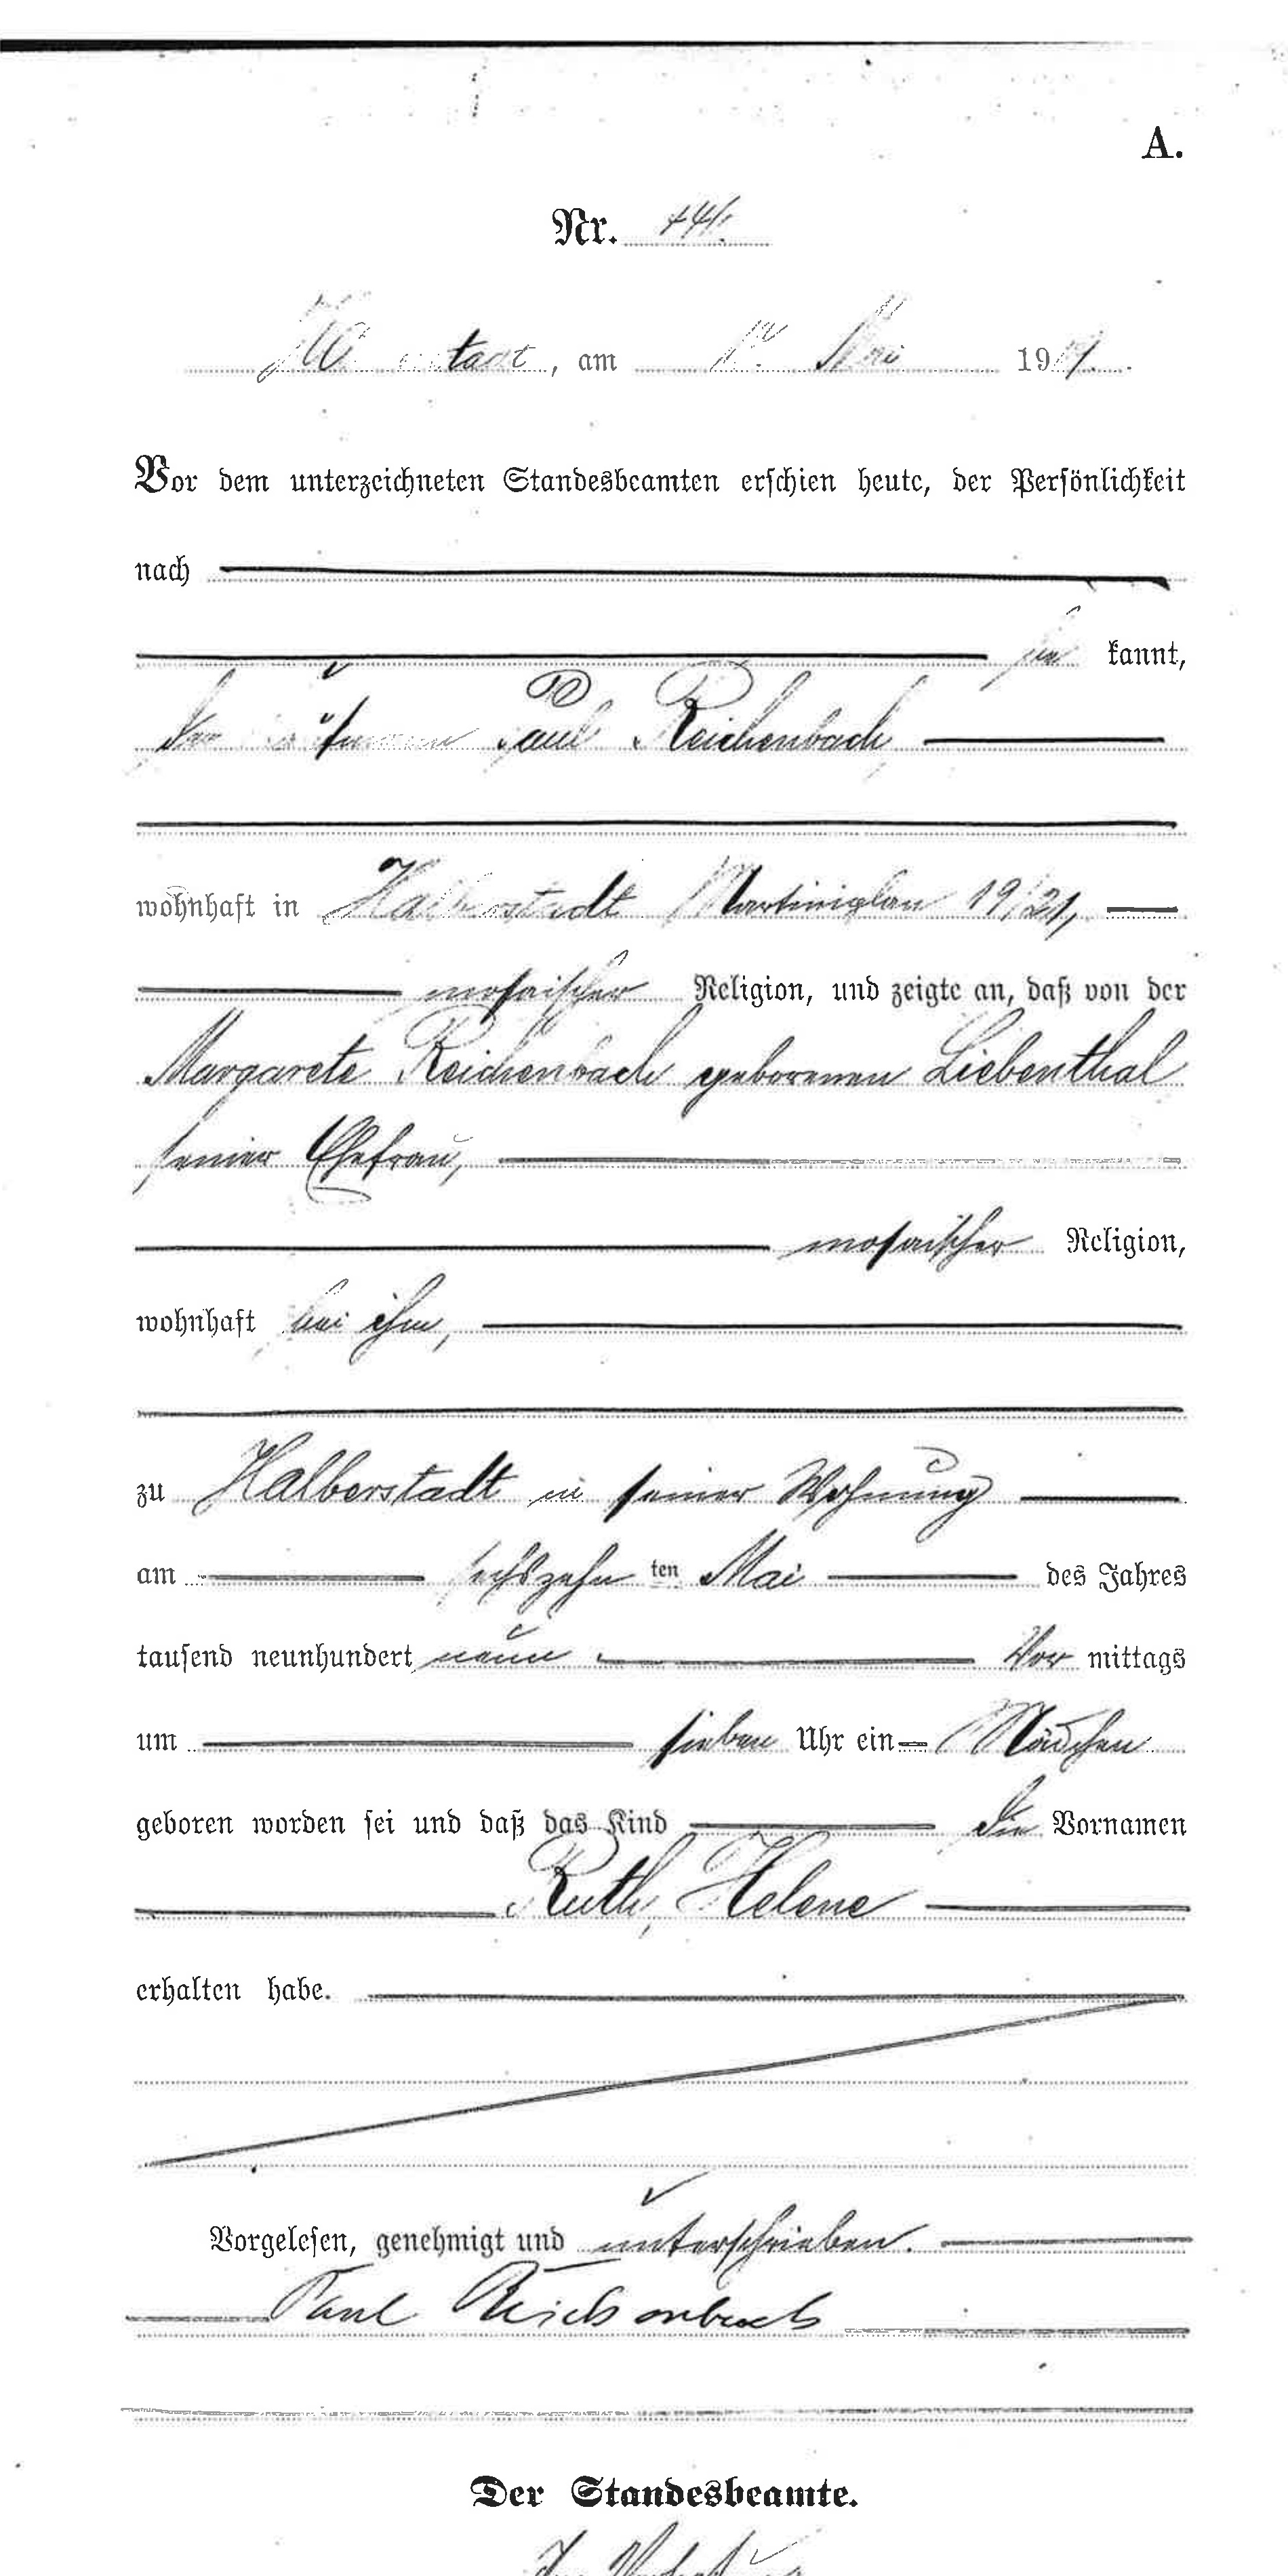 A.
Nr. 441.
Halberstadt, am Mai 1909.
Vor dem unterzeichneten Standesbeamten erschien heute, der Persönlichkeit
nach
be kannt,
der Kaufmann Paul Reichenbach
wohnhaft in Halberstadt Martiniplan 19/21,
mosaischer Religion, und zeigte an, daß von der
Margarete Reichenbach geborenen Liebenthal
seiner Ehefrau,
mosaischer Religion,
wohnhaft bei ihm,
zu Halberstadt in seiner Wohnung
am sechszehn ten Mai des Jahres
tausend neunhundert neun Vor mittags
um sieben Uhr ein Mädchen
geboren worden sei und daß das Kind die Vornamen
Ruth, Helene
erhalten habe.
Vorgelesen, genehmigt und unterschrieben.
Paul Reichenbach
Der Standesbeamte.
In Vertretung